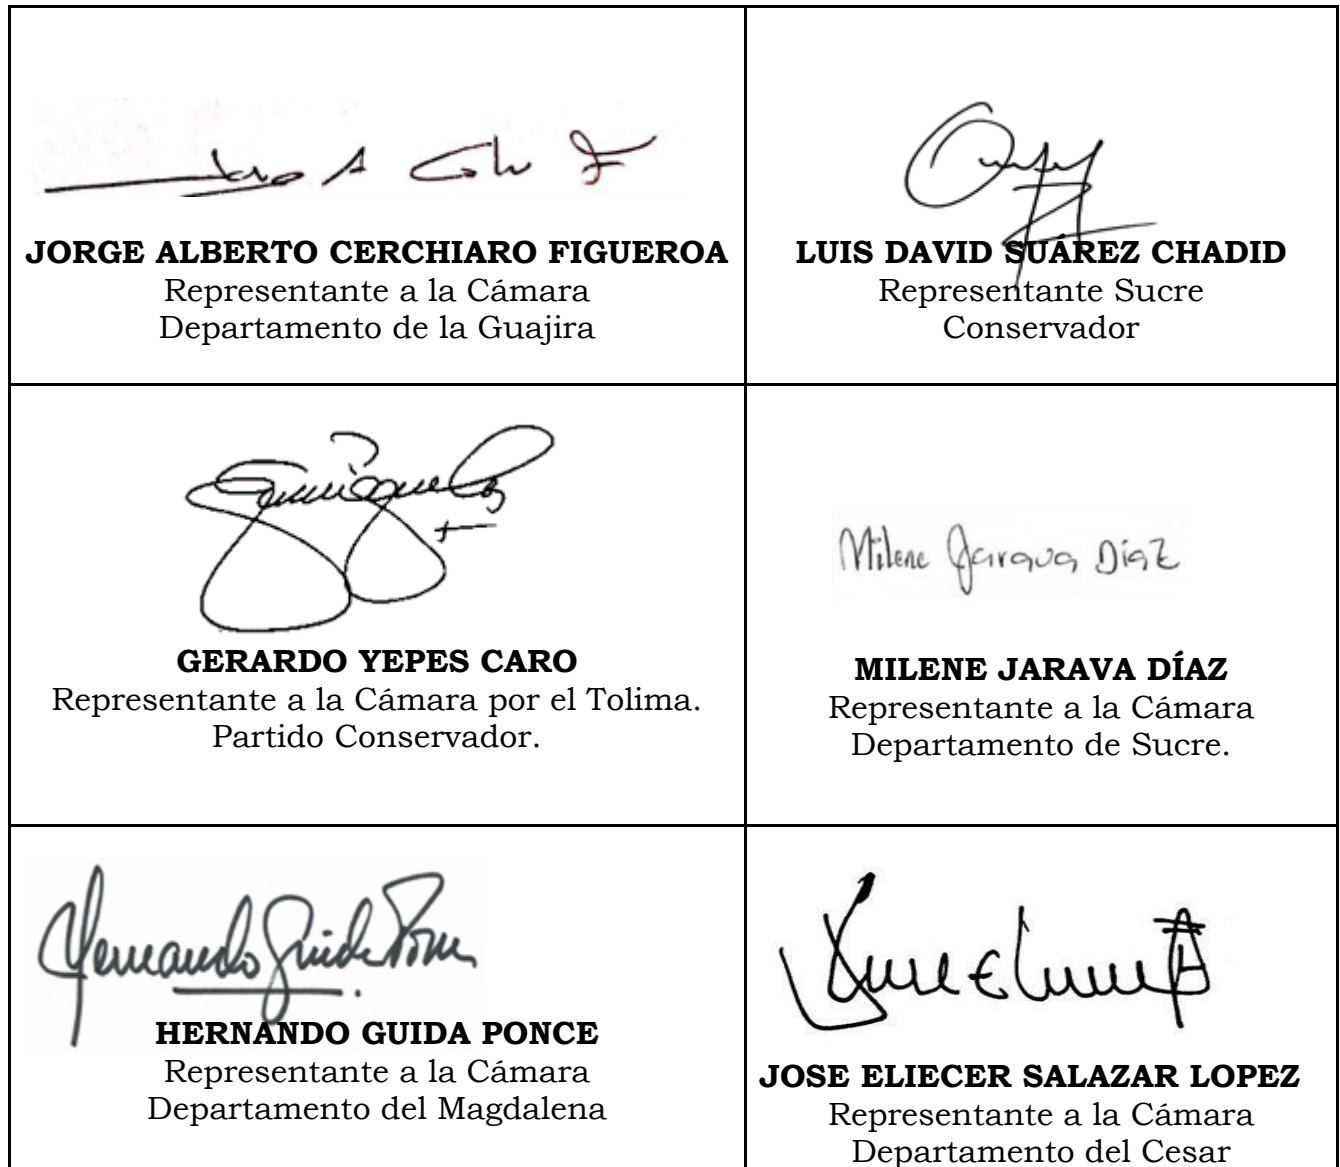 JORGE ALBERTO CERCHIARO FIGUEROA
Representante a la Cámara
Departamento de la Guajira
LUIS DAVID SUÁREZ CHADID
Representante Sucre
Conservador
GERARDO YEPES CARO
Representante a la Cámara por el Tolima.
Partido Conservador.
Milene Jarava Diaz
MILENE JARAVA DÍAZ
Representante a la Cámara
Departamento de Sucre.
Hernando Guida Ponce
HERNANDO GUIDA PONCE
Representante a la Cámara
Departamento del Magdalena
JOSE ELIECER SALAZAR LOPEZ
Representante a la Cámara
Departamento del Cesar